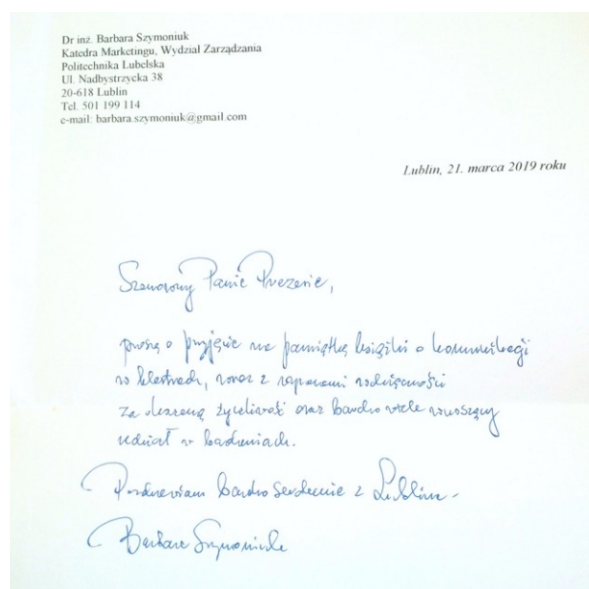 Dr inż. Barbara Szymoniuk
Katedra Marketingu, Wydział Zarządzania
Politechnika Lubelska
Ul. Nadbystrzycka 38
20-618 Lublin
Tel. 501 199 114
e-mail: barbara.szymoniuk@gmail.com
Lublin, 21. marca 2019 roku
Szanowny Panie Prezesie,
proszę o przyjęcie na pamiątkę książki o komunikacji
w klastrach, wraz z wyrazami wdzięczności
za okazaną życzliwość oraz bardzo wiele wnoszący
udział w badaniach.
Pozdrawiam bardzo serdecznie z Lublina -
Barbara Szymoniuk